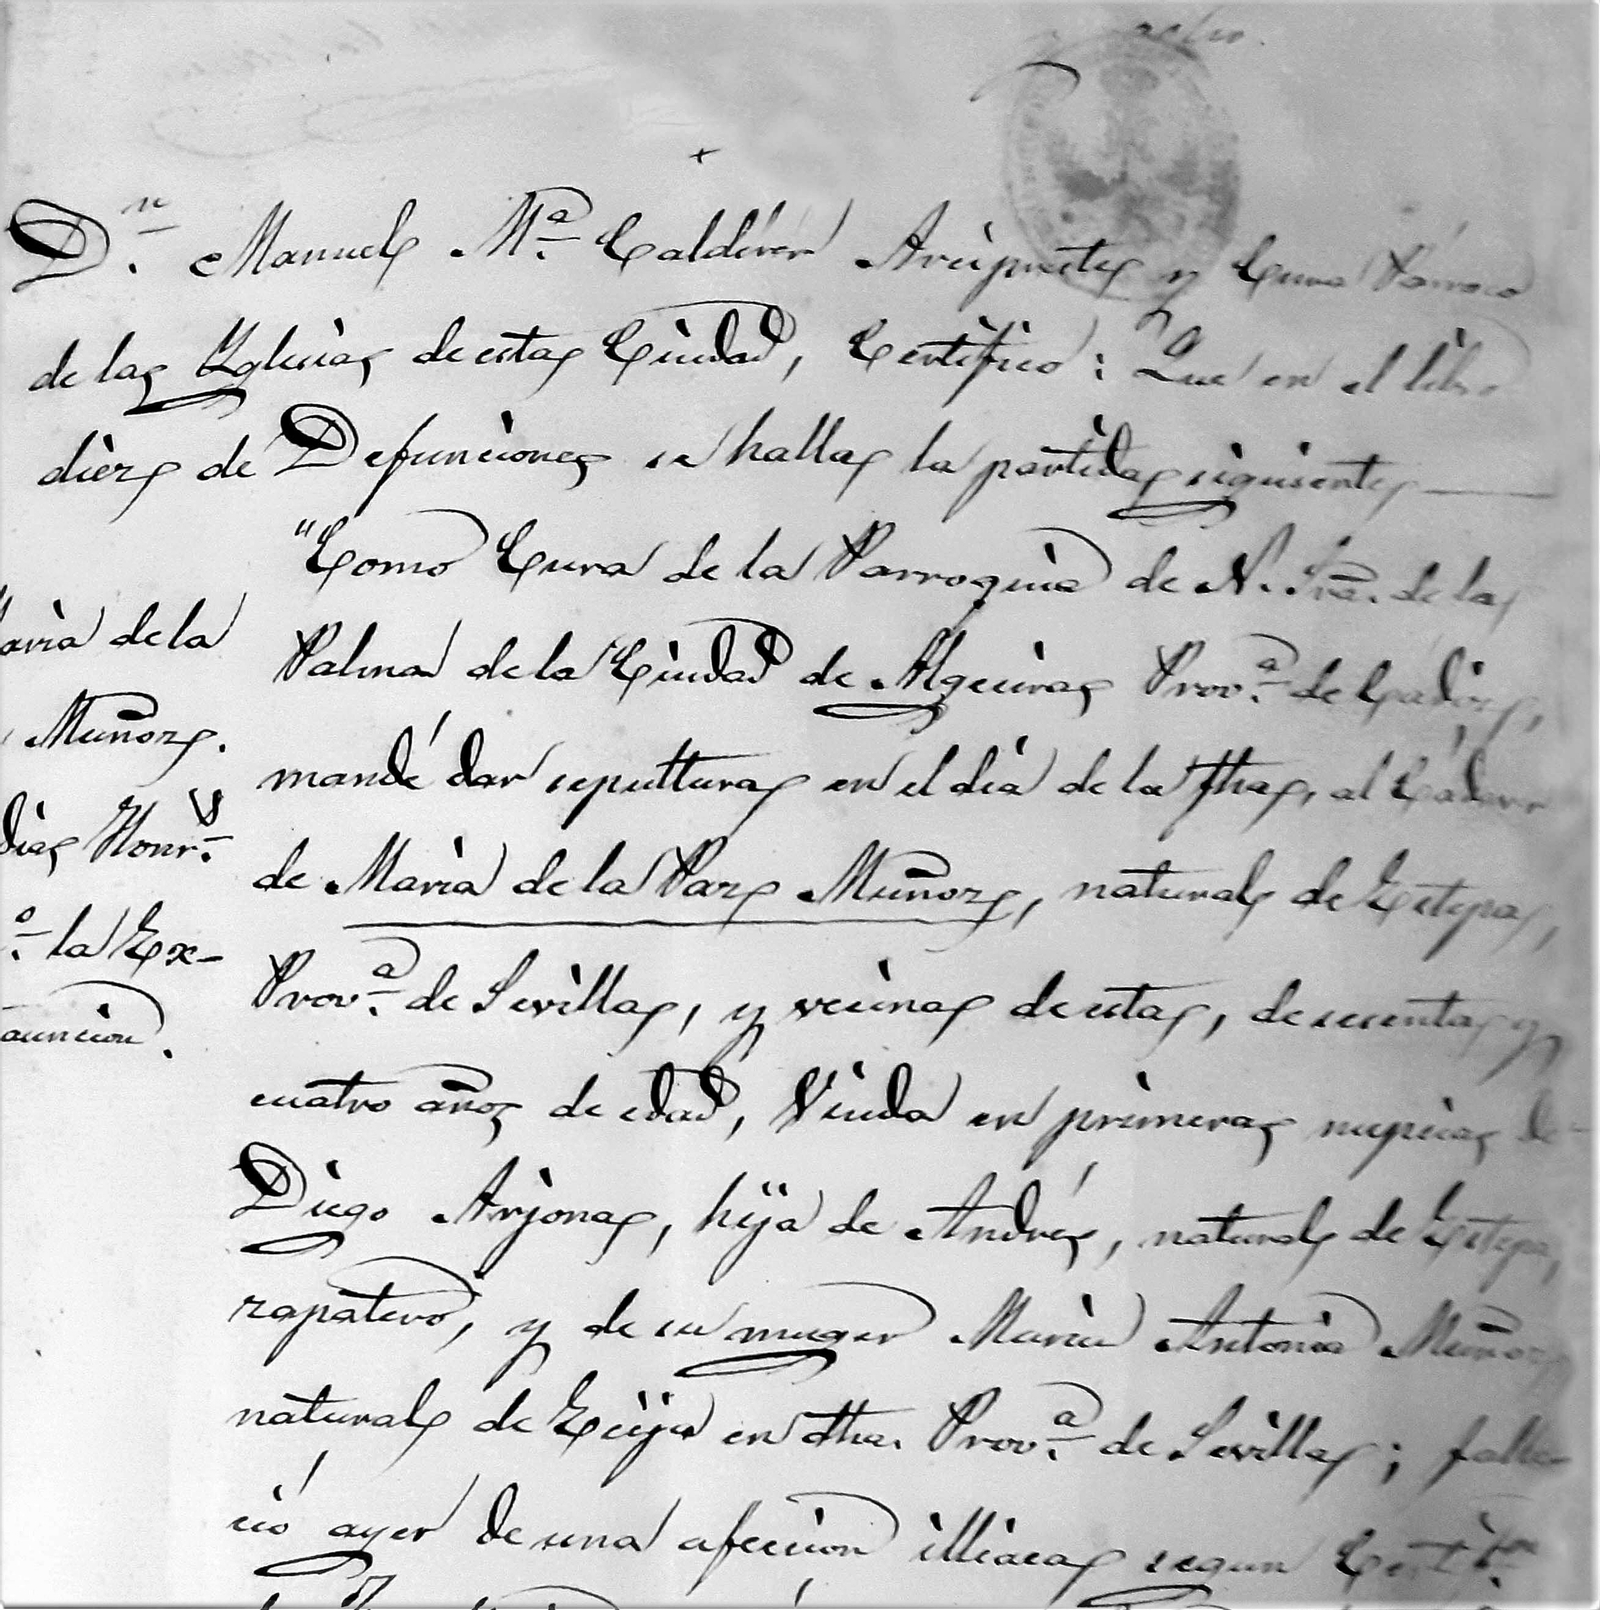 D.ⁿ Manuel M.ª Calderon Arcipreste y Cura Parroco
de la Yglesia de esta Ciudad, Certifico: Que en el libro
diez de Defunciones se halla la partida siguiente
"Como Cura de la Parroquia de N. Sra. de la
Palma de la Ciudad de Algeciras Prov.ª de Cadiz,
mandé dar sepulttura en el dia de la fha, al Cádaver
de Maria de la Paz Muñoz, natural de Estepa,
Prov.ª de Sevilla, y vecina de esta, de sesenta y
cuatro años de edad, Viuda en primeras nupcias de
Diego Arjona, hija de Andrés, natural de Estepa,
zapatero, y de su muger Maria Antonia Muñoz
natural de Ecija en dha. Prov.ª de Sevilla; falle-
ció ayer de una afeccion illiaca segun
aria de la
Muñoz.
Honr.ˢ
.º la Ex-
auncion.